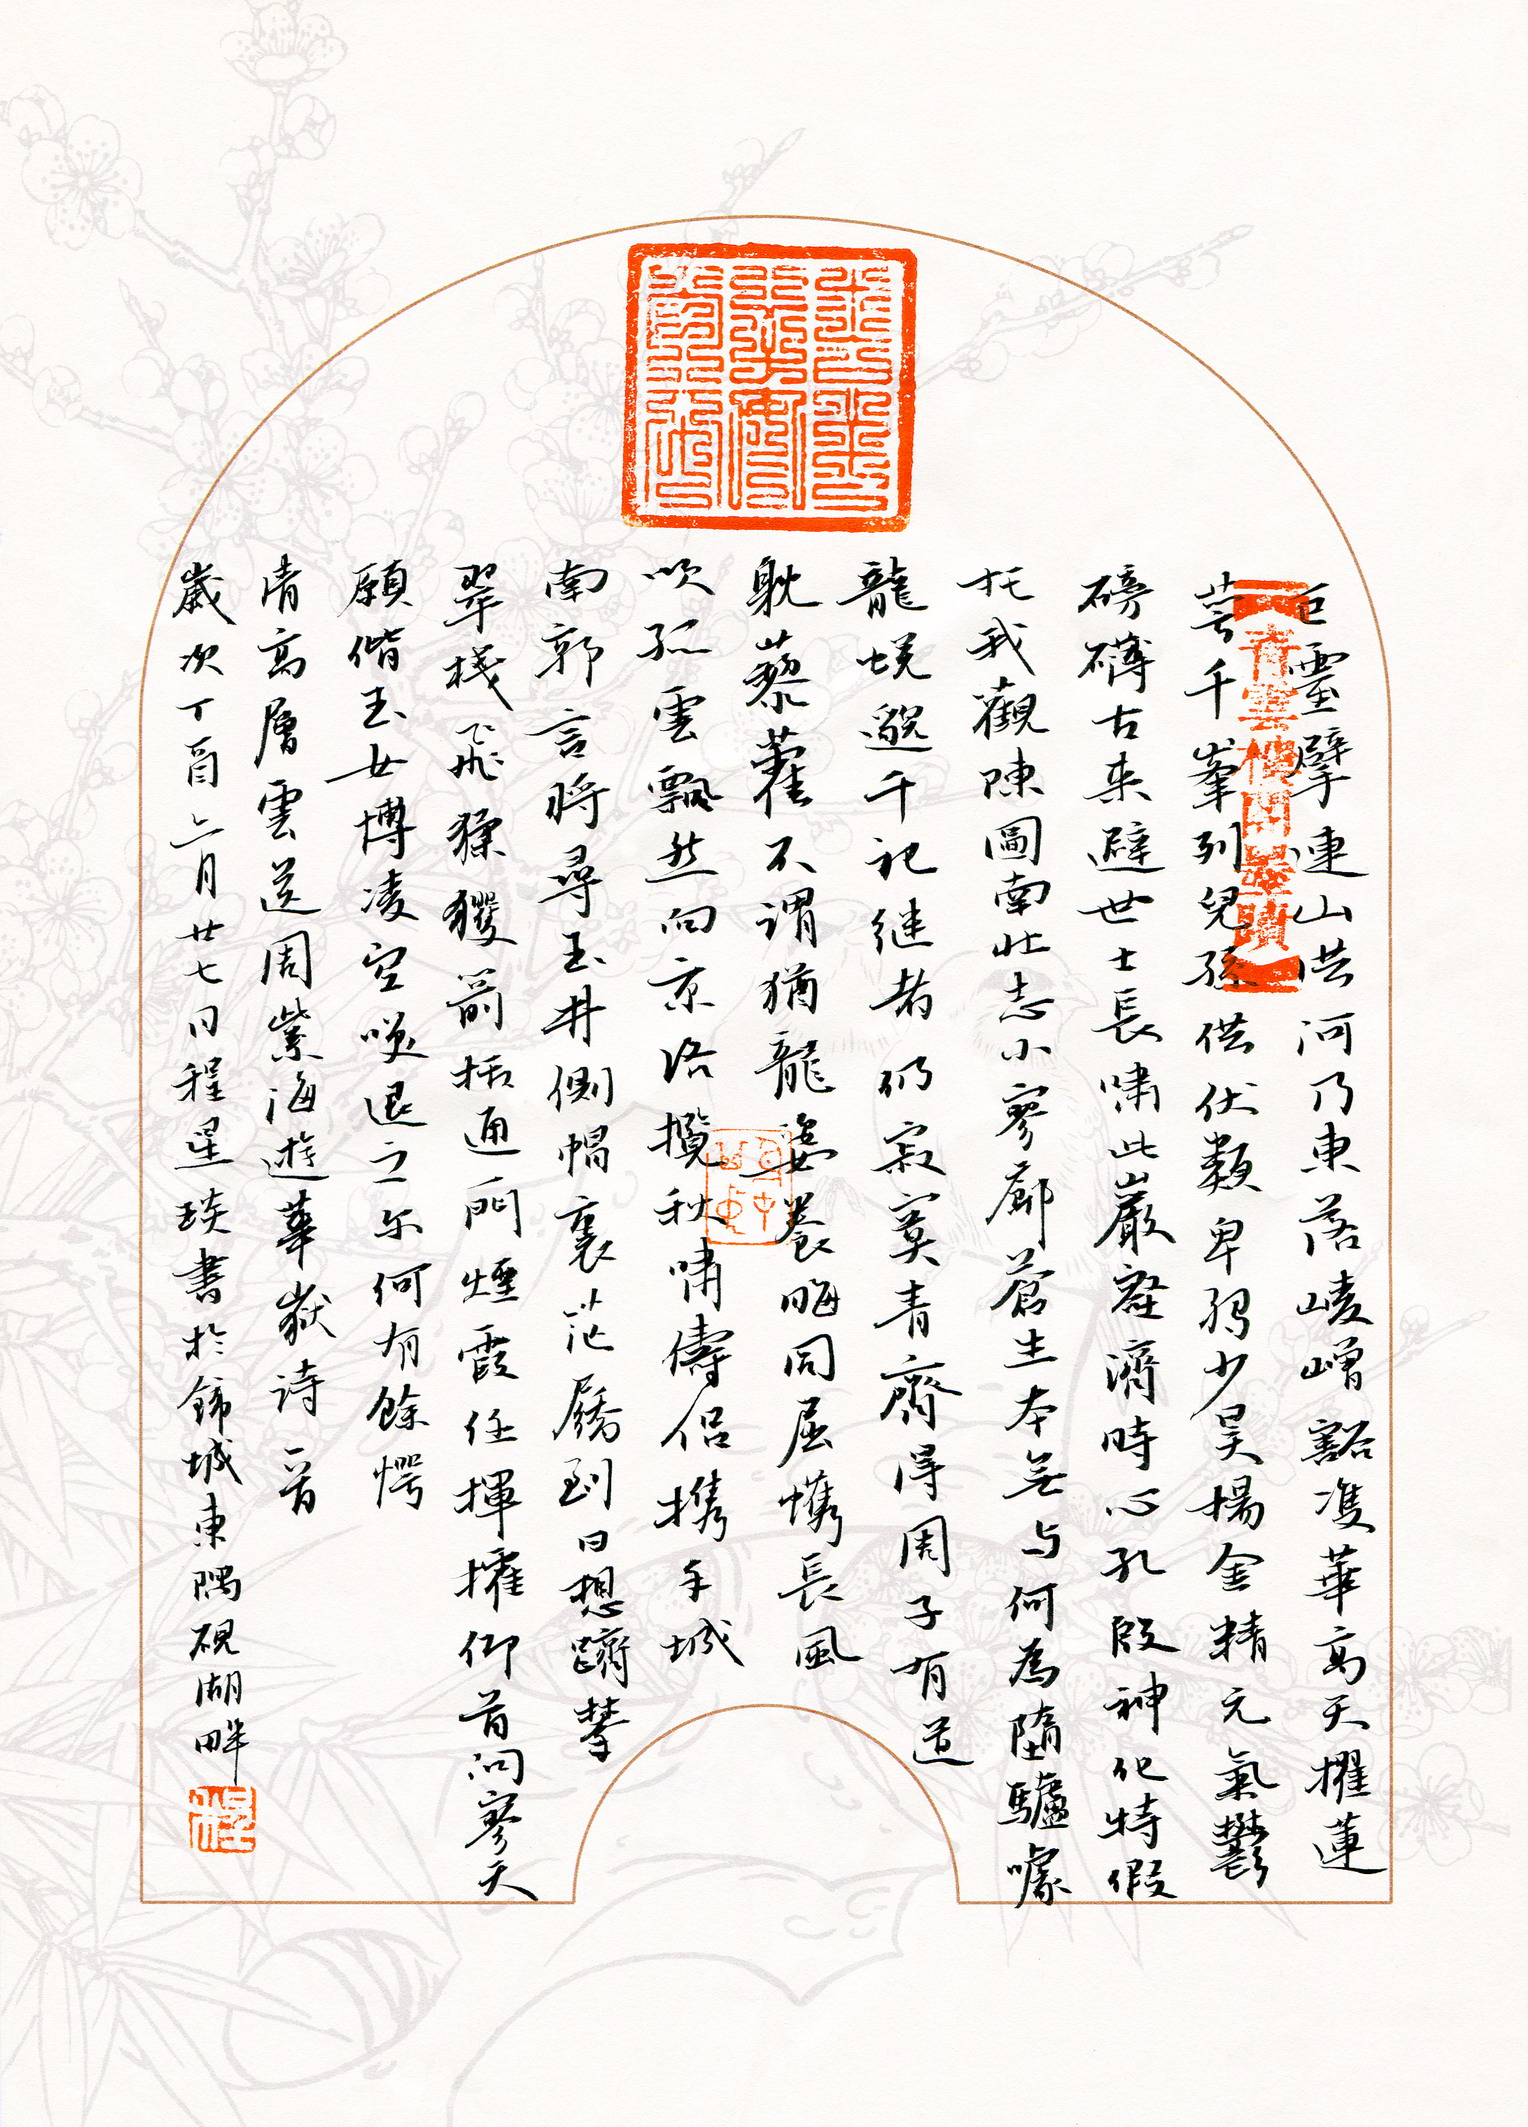 巨靈擘連山洪河乃東落崚嶒豁雙華高天擢蓮
萼千峯列兒孫供伏類卑弱少昊揚金精元氣鬱
磅礴古来避世士長嘯此巖壑濟時心孔殷神化特假
托我觀陳圖南壯志小寥廓蒼生本無与何為墮驢噱
龍蛻邈千祀继者仍寂寞青齊得周子有道
躭藜藿不謂猶龍姿養晦同屈蠖長風
吹孤雲飄然向京洛攬秋嘯儔侣携手城
南郭言将尋玉井側帽裹芒屩到日想躋攀
翠棧飛猱玃箭栝通一門煙霞任揮攉仰首问寥天
願偕玉女博凌空唤退之尔何有餘愕
清高層雲送周紫海遊華嶽詩一首
歲次丁酉六月廿七日程星琰書於錦城東隅硯湖畔